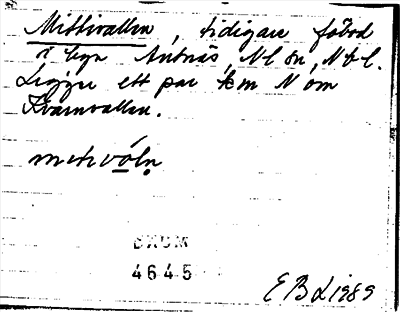 Mittivallen, tidigare fäbod
i byn Antnäs, Nl sn, Nbl.
Ligger ett par km N om
Kvarnvallen.
DAUM
4645
EBL 1989